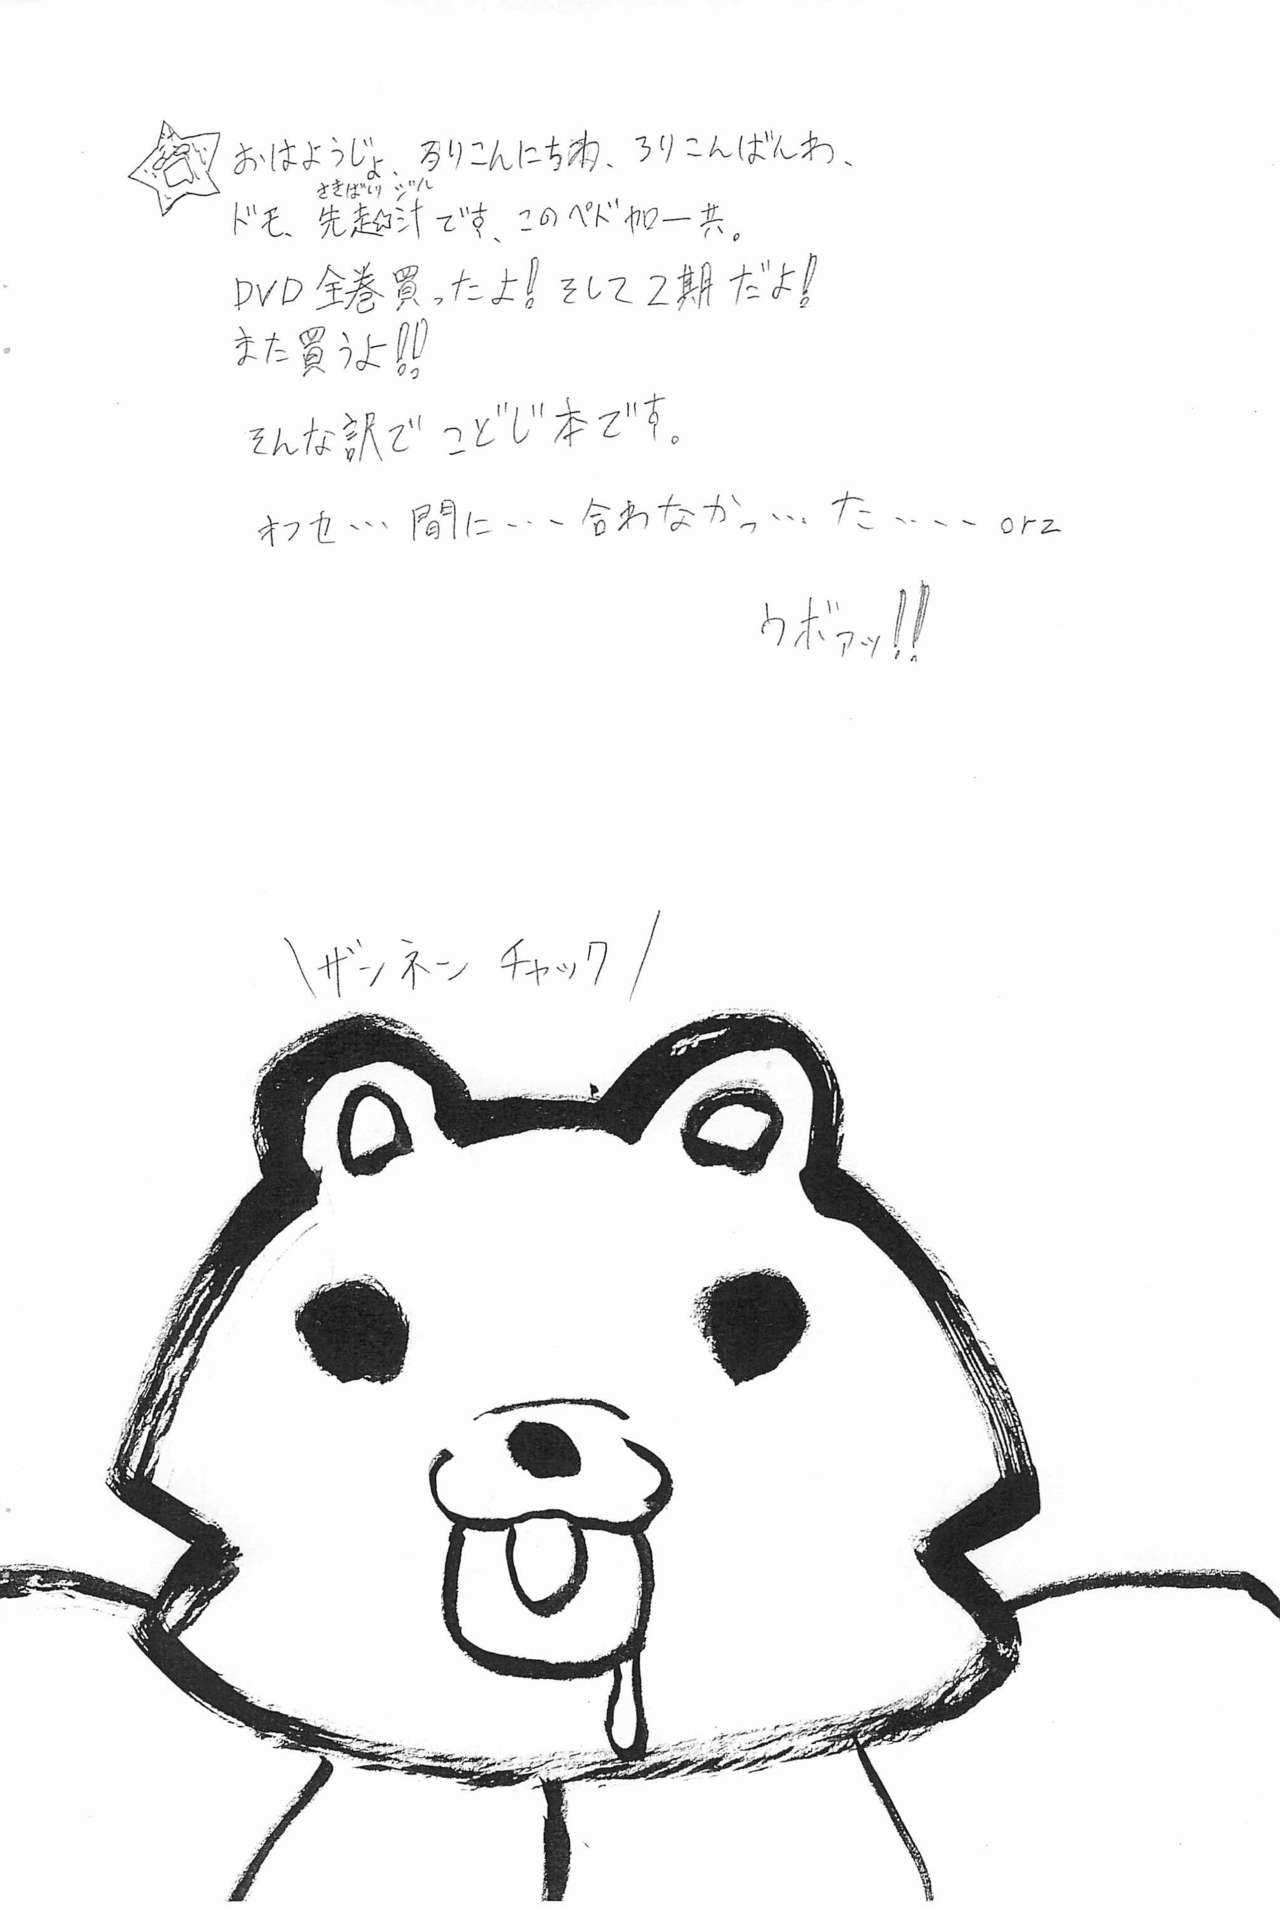 おはようじょ、ろりこんにちわ、ろりこんばんわ、
さきばしり ジル
ドモ、先走汁です、このペド野郎共。
DVD全巻買ったよ！そして2期だよ！
また買うよ！！
そんな訳でこどじ本です。
オフセ…間に…合わなかっ…た…orz
ウボァッ！！
ザンネーン チャック